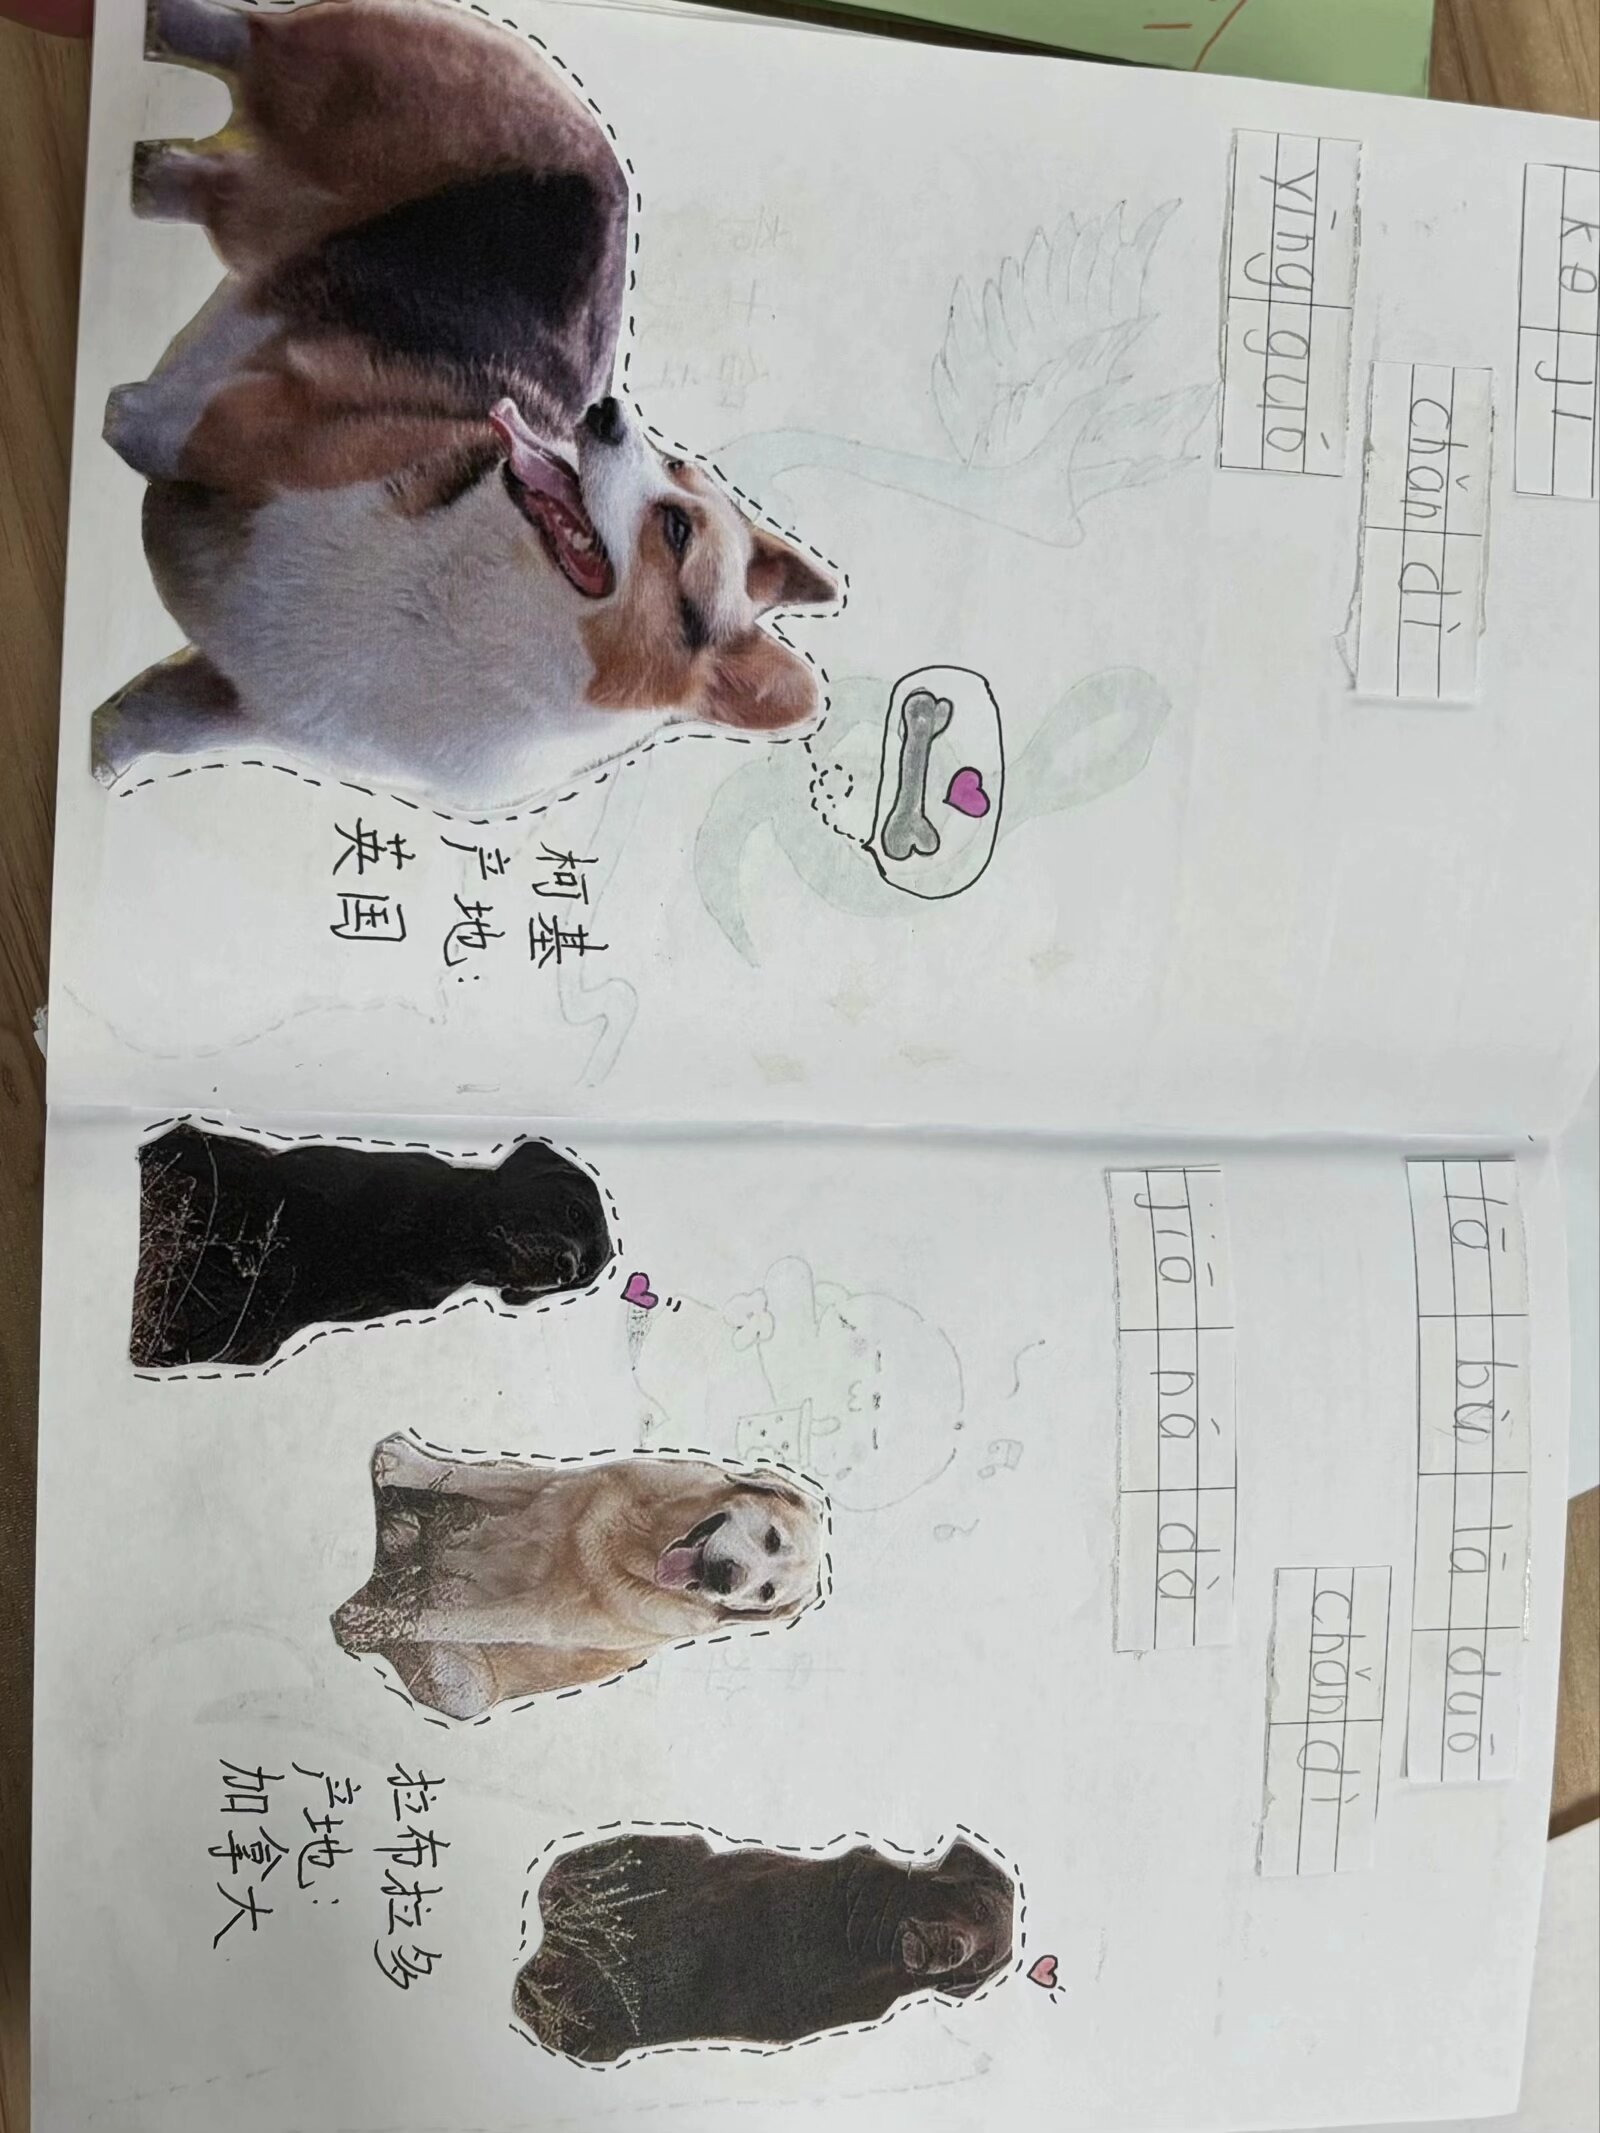 ke ji
chǎn dì
yīng guó
柯基
产地:
英国
lā bù lā duō
chǎn dì
jiā ná dà
拉布拉多
产地:
加拿大